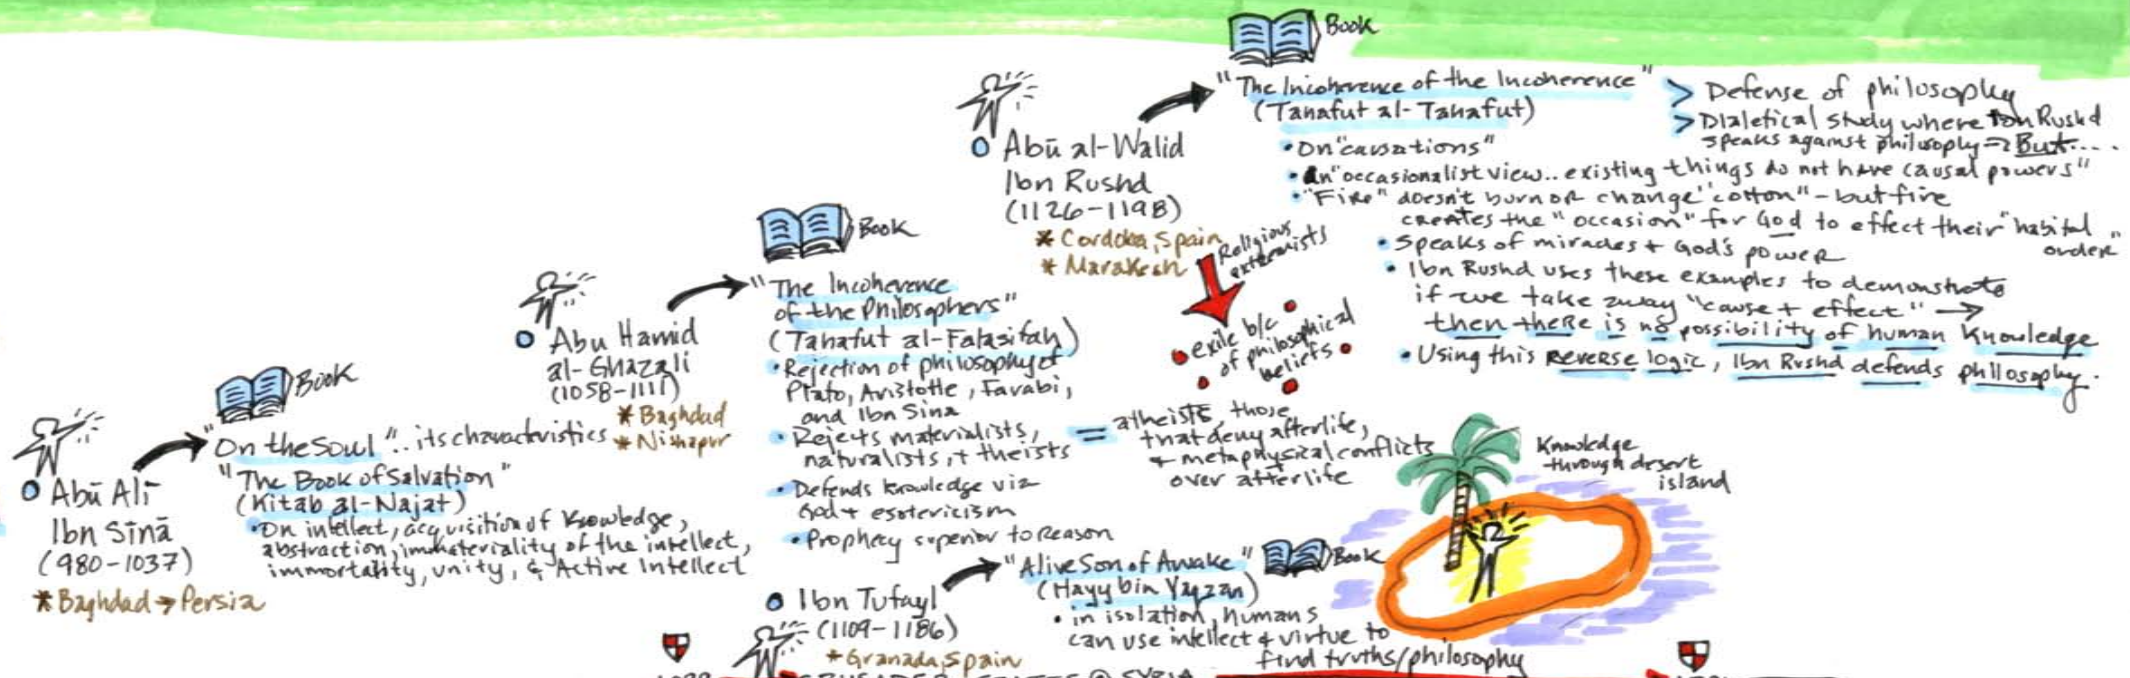 Book
"On the Soul".. its characteristics
"The Book of Salvation"
(Kitab al-Najat)
•On intellect, acquisition of Knowledge,
abstraction, immateriality of the intellect,
immortality, unity, & Active Intellect
Abū Alī
Ibn Sīnā
(980-1037)
*Baghdad → Persia
Abu Hamid
al-Ghazali
(1058-1111)
* Baghdad
* Nishapur
Book
"The Incoherence
of the Philosophers"
(Tahafut al-Falasifah)
•Rejection of philosophy of
Plato, Aristotle, Farabi,
and Ibn Sina
•Rejects materialists,
naturalists, + theists
= atheists, those
that deny afterlife,
+ metaphysical conflicts
over afterlife
•Defends knowledge via
God + esotericism
•Prophecy superior to Reason
Ibn Tufayl
(1109-1186)
*Granada, Spain
"Alive Son of Awake"
(Hayy bin Yaqzan)
• in isolation, humans
can use intellect & virtue to
find truths/philosophy
Book
Knowledge
through desert
island
Abū al-Walid
Ibn Rushd
(1126-1198)
* Cordoba, Spain
* Marakesh
Religious
extremists
exile b/c
of philosophical
beliefs
Book
"The Incoherence of the Incoherence"
(Tahafut al-Tahafut)
> Defense of philosophy
> Dialetical study where Ibn Rushd
speaks against philosophy => But....
•On "causations"
•An "occasionalist view.. existing things do not have causal powers"
•"Fire" doesn't burn or change "cotton" - but fire
creates the "occasion" for God to effect their "habital
order"
•Speaks of miracles + God's power
•Ibn Rushd uses these examples to demonstrate
if we take away "cause + effect" →
then there is no possibility of human Knowledge
•Using this reverse logic, Ibn Rushd defends philosophy.
CRUSADER STATES @ SYRIA